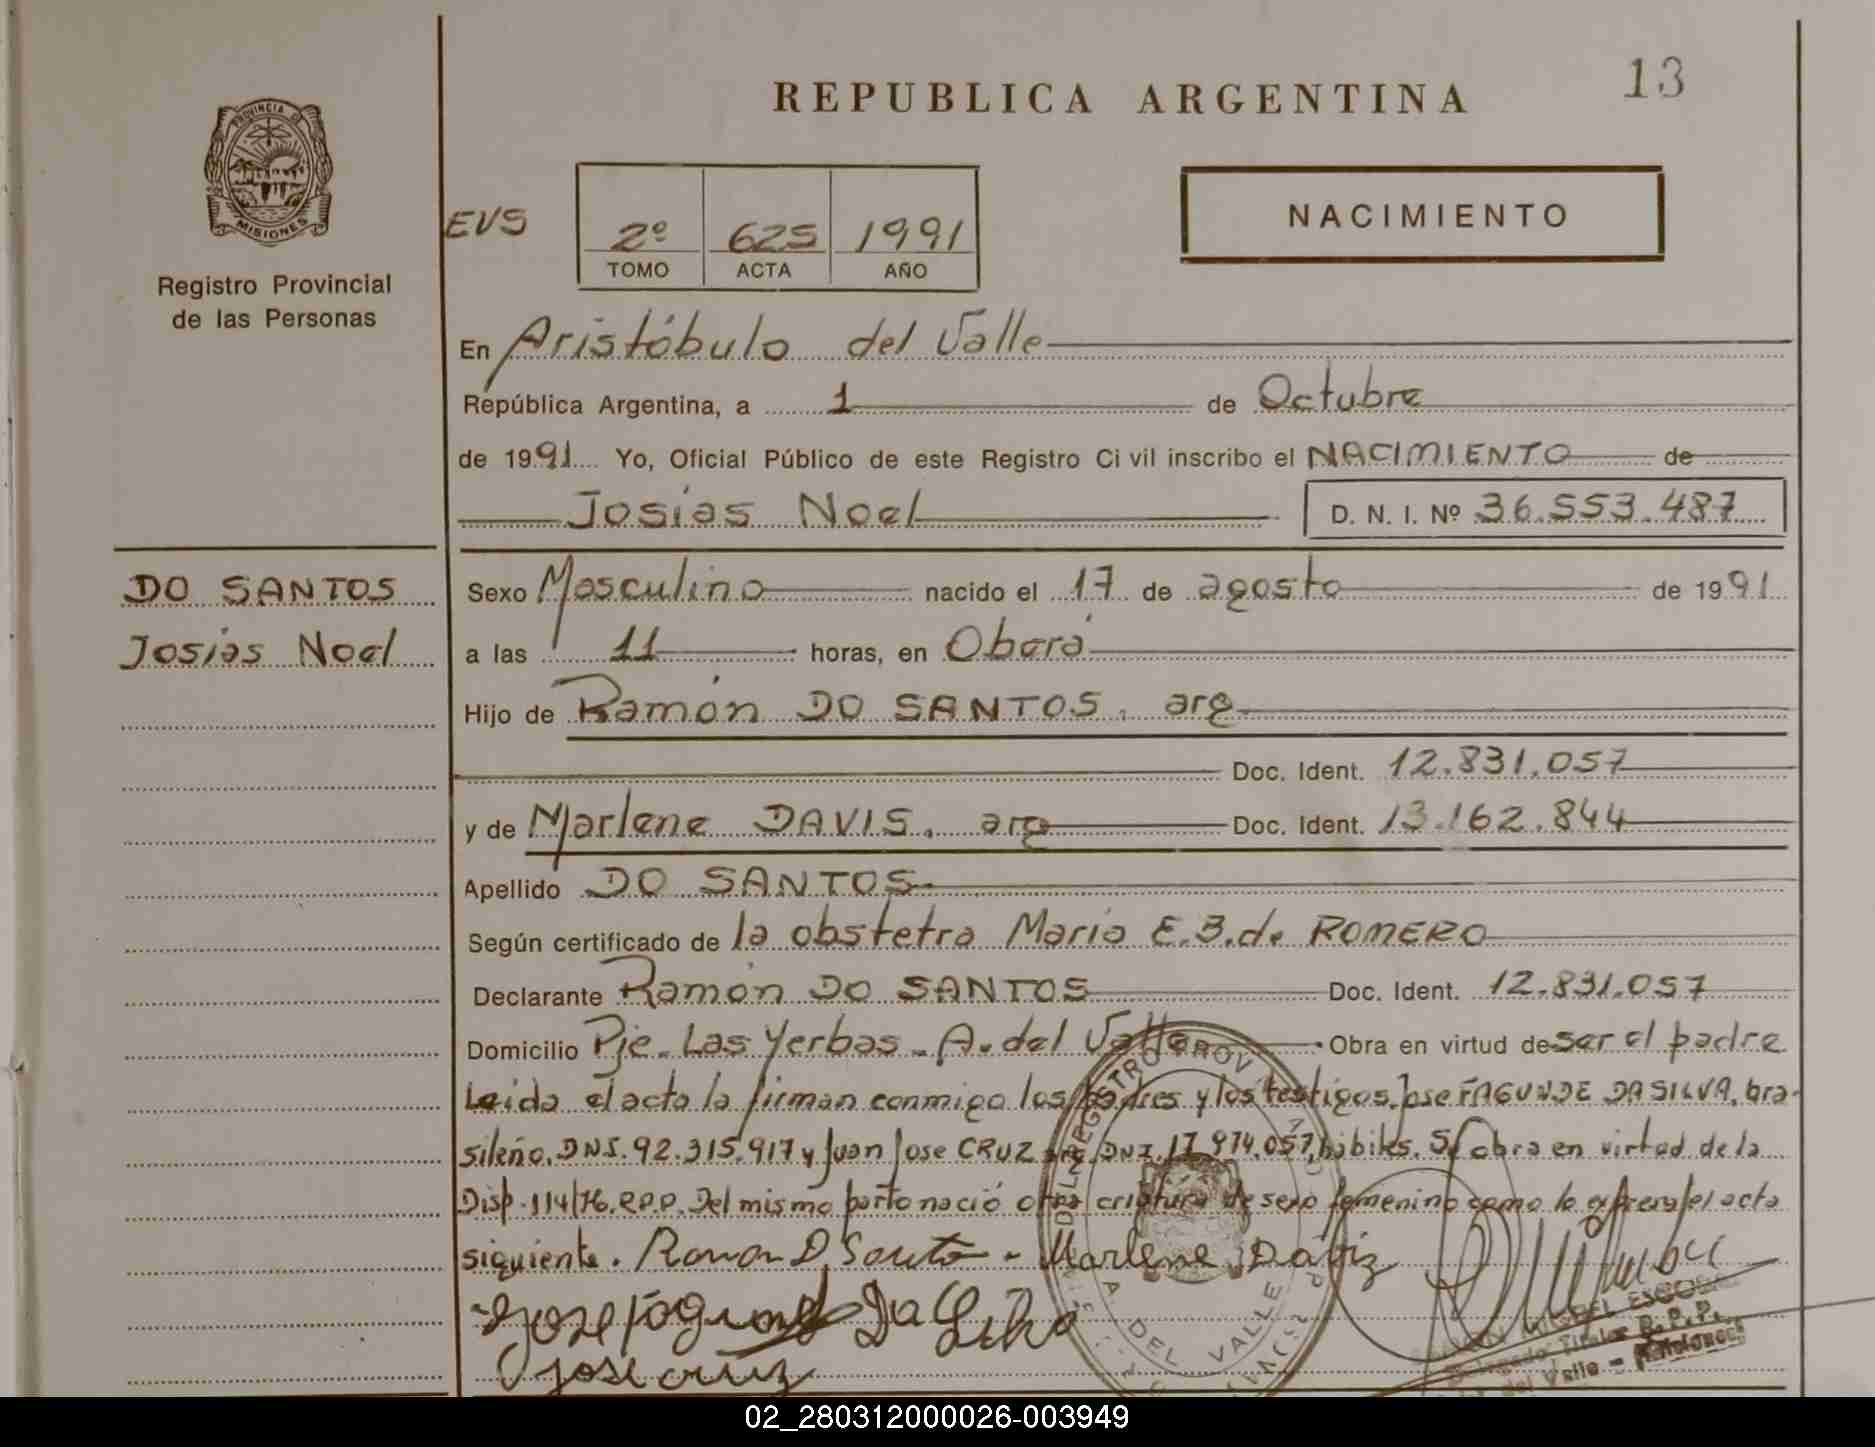 13
REPUBLICA ARGENTINA
PROVINCIA DE
MISIONES
Registro Provincial
de las Personas
EVS
2º 625 1991
TOMO ACTA AÑO
NACIMIENTO
En Aristóbulo del Valle
República Argentina, a 1 de Octubre
de 1991 Yo, Oficial Público de este Registro Civil inscribo el NACIMIENTO de
Josías Noel D. N. I. Nº 36.553.487
DO SANTOS
Josías Noel
Sexo Masculino nacido el 17 de agosto de 1991
a las 11 horas, en Oberá
Hijo de Ramón DO SANTOS. arg
Doc. Ident. 12.831.057
y de Marlene DAVIS. arg Doc. Ident. 13.162.844
Apellido DO SANTOS
Según certificado de la obstetra María E.B. de ROMERO
Declarante Ramón DO SANTOS Doc. Ident. 12.831.057
Domicilio Pje. Las Yerbas. A. del Valle Obra en virtud de ser el padre
Leída el acta la firman conmigo los padres y los testigos. Jose FAGUNDE DA SILVA, bra-
sileño. DNI. 92.315.917 y Juan Jose CRUZ arg. DNI. 17.974.057, hábiles. Se obra en virtud de la
Disp. 114/76. R.P.P. Del mismo parto nació otra criatura de sexo femenino como lo expresa el acta
siguiente. Ramon D Santo - Marlene Daviz
Jose fagund Da Silva
Jose cruz
A. DEL VALLE
MIGUEL ESCOBAR
Delegado Titular R.P.P.
del Valle - Misiones
02_280312000026-003949